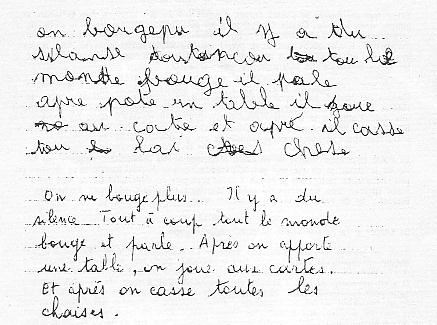 on bougepu il y a du
silanse toutoncou tou le
monde bouge il pale
apre pote un table il joue
au carte et apré il casse
tou lai chese
On ne bouge plus. Il y a du
silence Tout à coup tout le monde
bouge et parle. Après on apporte
une table, on joue aux cartes.
Et après on casse toutes les
chaises.